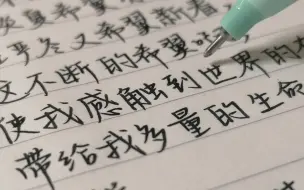 冬又希翼新春
不断的希翼
使我感触到世界的
带给我多量的生命